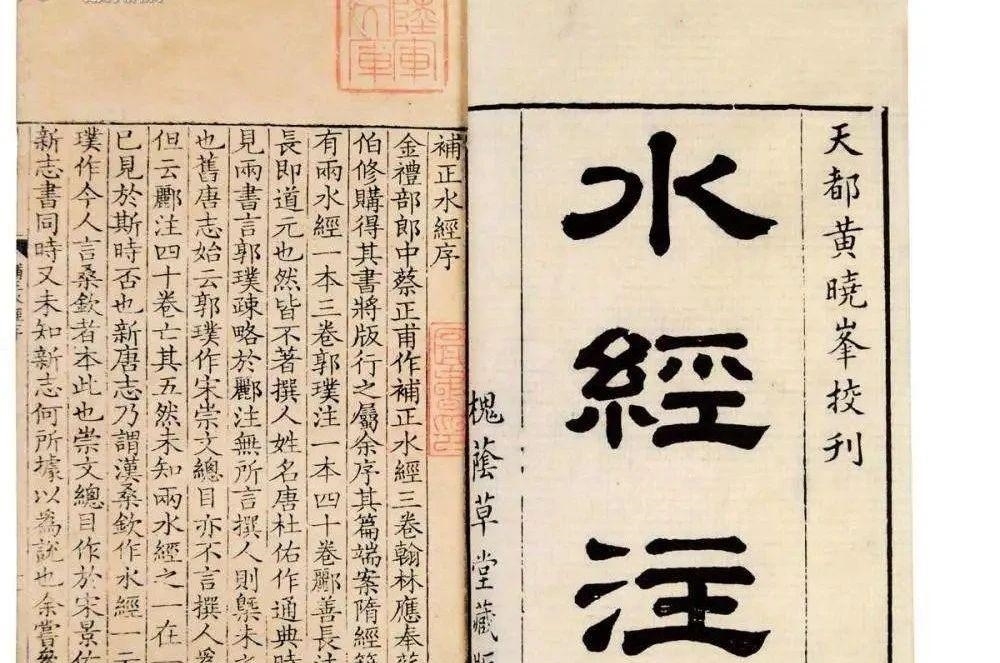 天都黃曉峯挍刊
水經注
槐蔭草堂藏
補正水經序
金禮部郎中蔡正甫作補正水經三卷翰林應奉
伯修購得其書將版行之屬余序其篇端案隋經
有兩水經一本三卷郭璞注一本四十卷酈善長注
長即道元也然皆不著撰人姓名唐杜佑作通典時
見兩書言郭璞疎略於酈注無所言撰人則槩未
也舊唐志始云郭璞作宋崇文總目亦不言撰人爲
但云酈注四十卷亡其五然未知兩水經之一在
已見於斯時否也新唐志乃謂漢桑欽作水經一云
璞作今人言桑欽者本此也崇文總目作於宋景佑
新志書同時又未知新志何所據以爲說也余嘗